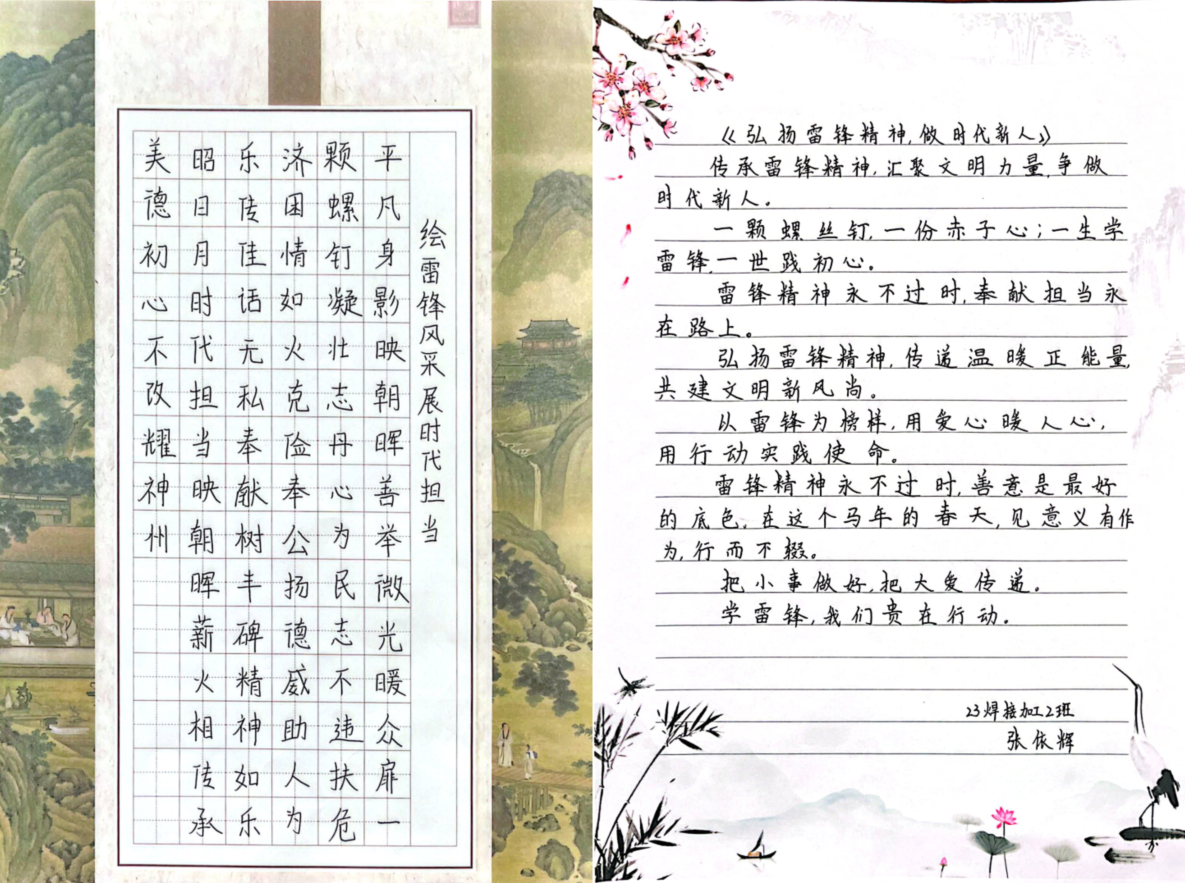 绘雷锋风采展时代担当
平凡身影映朝晖善举微光暖众扉一
颗螺钉凝壮志丹心为民志不违扶危
济困情如火克俭奉公扬德威助人为
乐传佳话无私奉献树丰碑精神如乐
昭日月时代担当映朝晖薪火相传承
美德初心不改耀神州
《弘扬雷锋精神,做时代新人》
传承雷锋精神,汇聚文明力量,争做
时代新人。
一颗螺丝钉,一份赤子心;一生学
雷锋,一世践初心。
雷锋精神永不过时,奉献担当永
在路上。
弘扬雷锋精神,传递温暖正能量,
共建文明新风尚。
以雷锋为榜样,用爱心暖人心,
用行动实践使命。
雷锋精神永不过时,善意是最好
的底色,在这个马年的春天,见意义有作
为,行而不辍。
把小事做好,把大爱传递。
学雷锋,我们贵在行动。
23焊接加工2班
张依辉